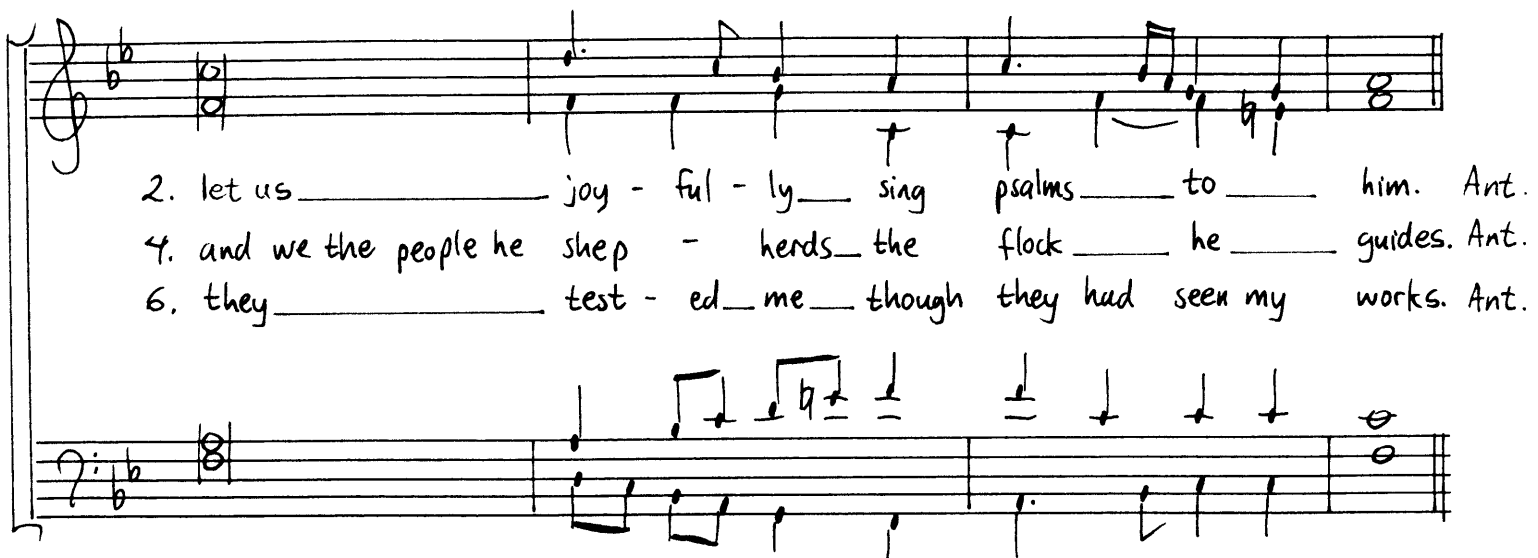 2. let us joy - ful - ly sing psalms to him. Ant.
4. and we the people he shep - herds the flock he guides. Ant.
6. they test - ed me though they had seen my works. Ant.